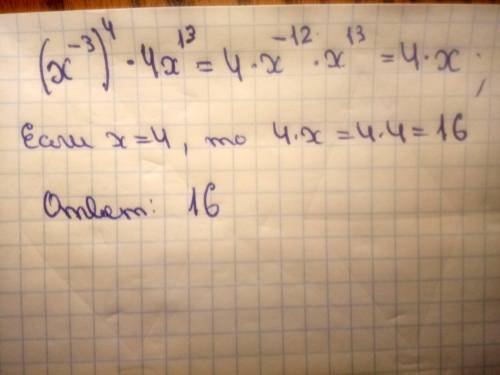 (x⁻³)⁴ · 4x¹³ = 4 · x⁻¹² · x¹³ = 4 · x ;
Если x = 4 , то 4 · x = 4 · 4 = 16
Ответ: 16